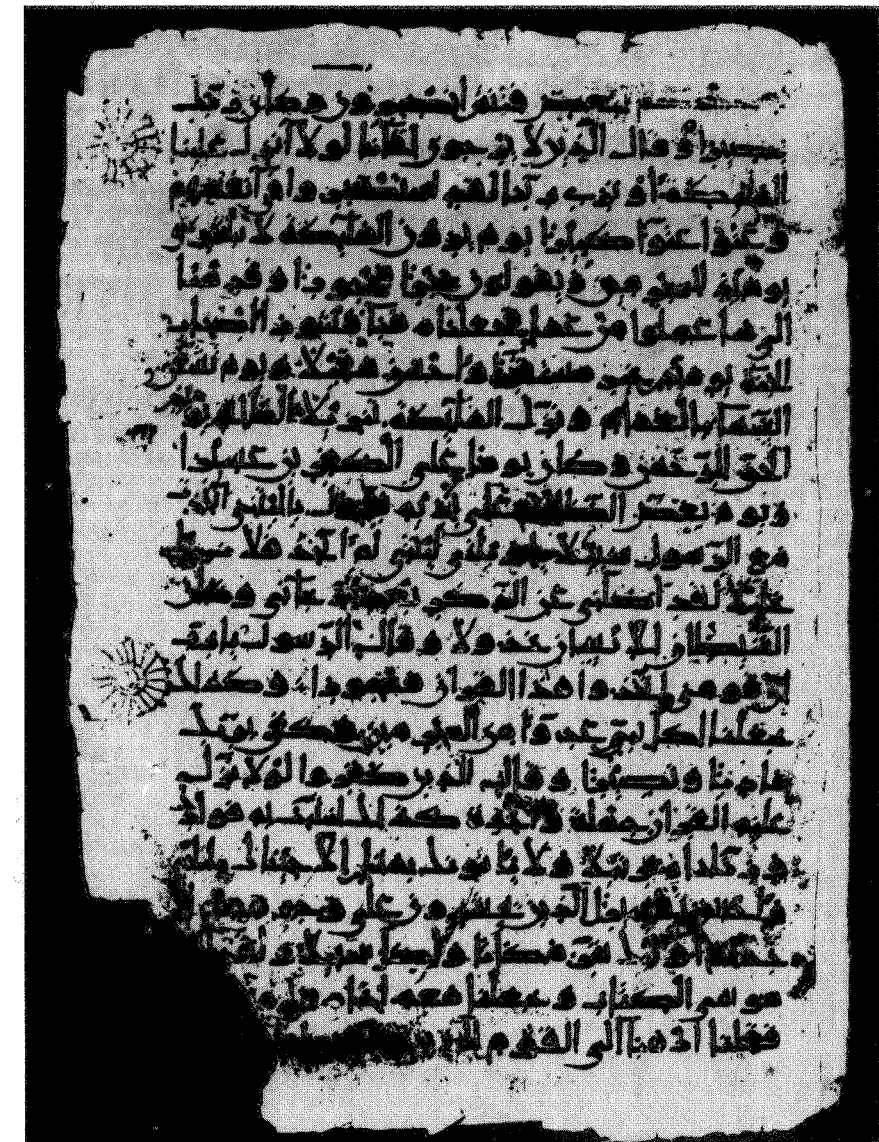 بعضكم لبعض فتنة اتصبرون وكان ربك
بصيرا وقال الذين لا يرجون لقانا لولا انزل علينا
الملئكة او نرى ربنا لقد استكبروا في انفسهم
وعتوا عتوا كبيرا يوم يرون الملئكة لا بشرى
يومئذ للمجرمين ويقولون حجرا محجورا وقدمنا
الى ما عملوا من عمل فجعلناه هبا منثورا اصحاب
الجنة يومئذ خير مستقرا واحسن مقيلا ويوم تشقق
السما بالغمام ونزل الملئكة تنزيلا الملك يومئذ
الحق للرحمن وكان يوما على الكفرين عسيرا
ويوم يعض الظالم على يديه يقول يليتني اتخذت
مع الرسول سبيلا يويلتى ليتني لم اتخذ فلانا
خليلا لقد اضلني عن الذكر بعد اذ جاني وكان
الشيطان للانسان خذولا وقال الرسول يارب
ان قومي اتخذوا هذا القران مهجورا وكذلك
جعلنا لكل نبي عدوا من المجرمين وكفى بربك
هاديا ونصيرا وقال الذين كفروا لولا نزل
عليه القران جملة وحدة كذلك لنثبت به فوادك
ورتلناه ترتيلا ولا ياتونك بمثل الا جئناك بالحق
واحسن تفسيرا الذين يحشرون على وجوههم الى
جهنم اولئك شر مكانا واضل سبيلا ولقد اتينا
موسى الكتاب وجعلنا معه اخاه هرون
فقلنا اذهبا الى القوم الذين